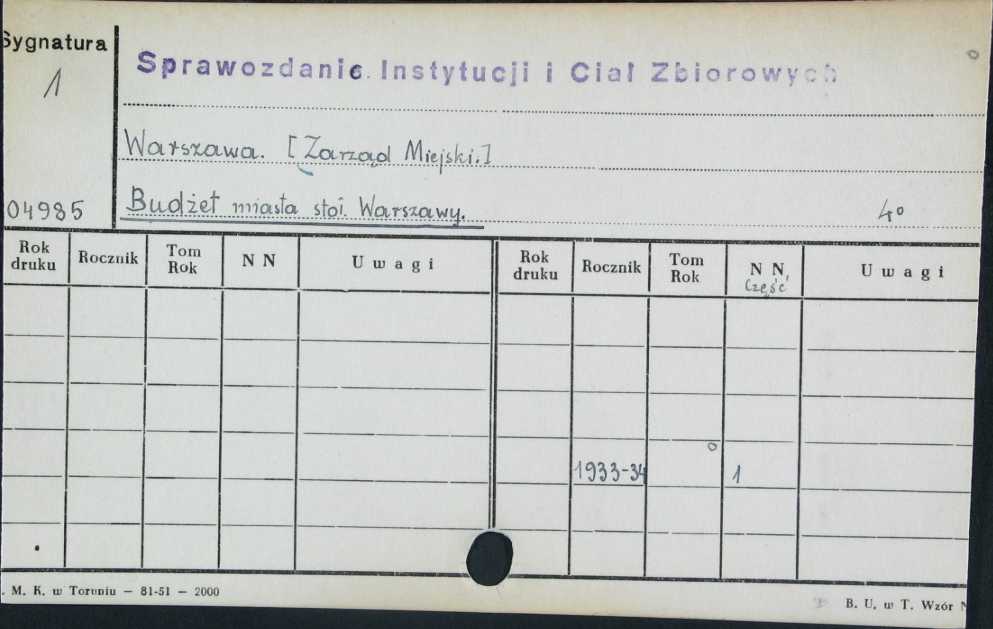 Sygnatura
1
Sprawozdanie Instytucji i Ciał Zbiorowych
Warszawa. [Zarząd Miejski.]
04985
Budżet miasta stoł. Warszawy.
4°
Rok druku Rocznik Tom Rok N N Uwagi Rok druku Rocznik Tom Rok N N, Część Uwagi
1933-34 1
. M. K. w Toruniu — 81-51 — 2000
B. U. w T. Wzór N